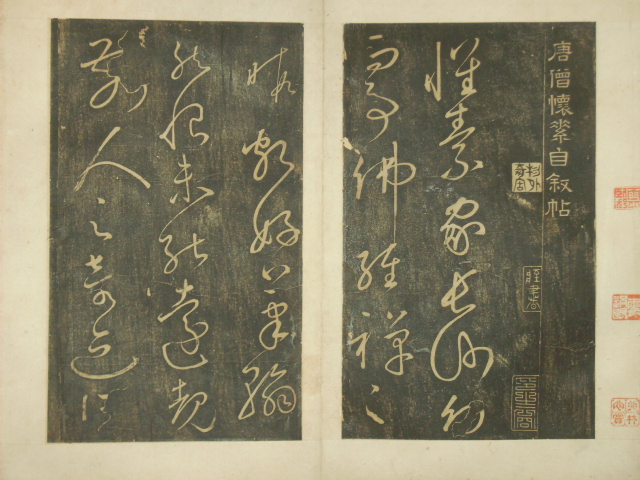 唐僧懷素自叙帖
懷素家長沙幼
而事佛經禪之
暇頗好筆翰
然恨未能遠覩
前人之奇迹所